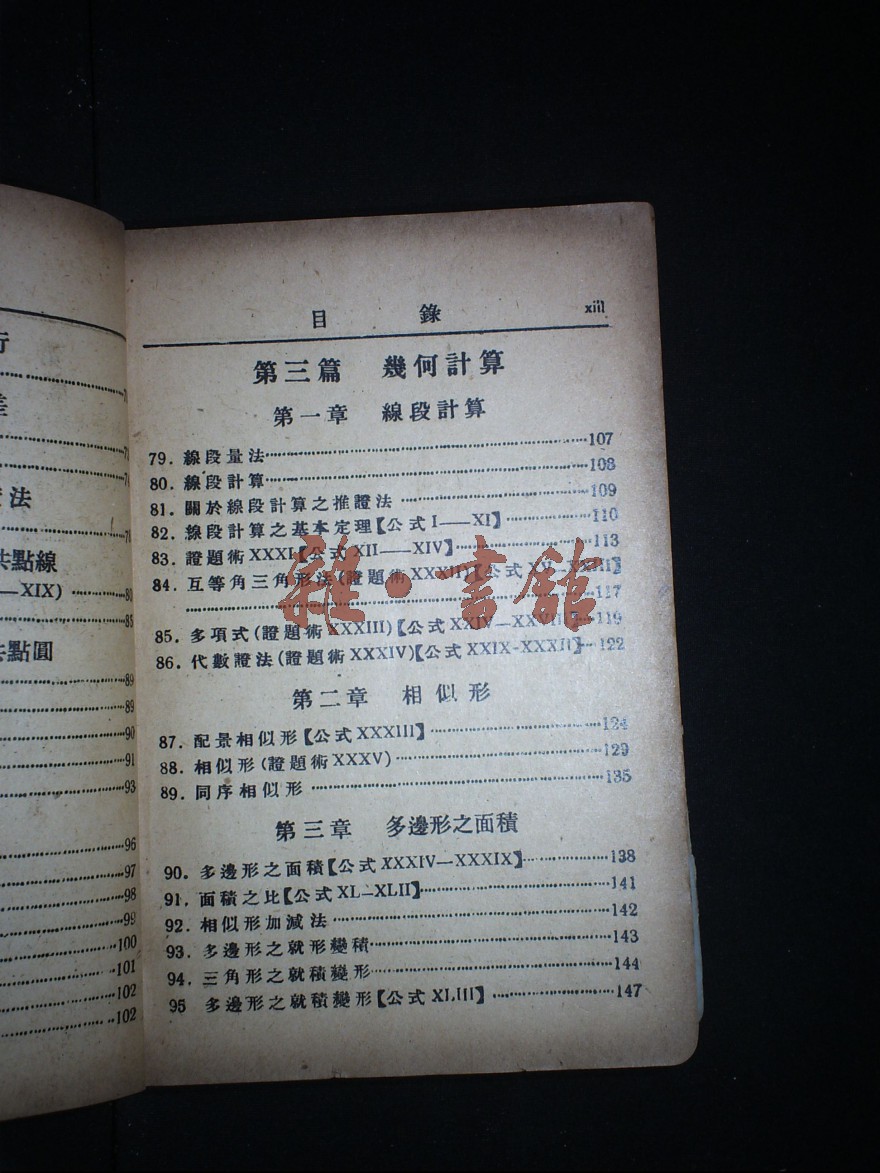 行
差
法
共點線
—XIX)
80
85
共點圓
89
89
90
91
93
96
97
98
99
100
101
102
102
目錄 xiii
第三篇 幾何計算
第一章 線段計算
79. 線段量法 107
80. 線段計算 108
81. 關於線段計算之推證法 109
82. 線段計算之基本定理【公式 I——XI】 110
83. 證題術XXXI【公式 XII——XIV】 113
84. 互等角三角形法(證題術XXXII)【公式 XV—XXIII】
117
85. 多項式(證題術XXXIII)【公式 XXIV—XXVIII】 119
86. 代數證法(證題術XXXIV)【公式 XXIX-XXXII】 122
第二章 相似形
87. 配景相似形【公式 XXXIII】 124
88. 相似形(證題術XXXV) 129
89. 同序相似形 135
第三章 多邊形之面積
90. 多邊形之面積【公式 XXXIV—XXXIX】 138
91. 面積之比【公式 XL—XLII】 141
92. 相似形加減法 142
93. 多邊形之就形變積 143
94. 三角形之就積變形 144
95 多邊形之就積變形【公式 XLIII】 147
雜·書館